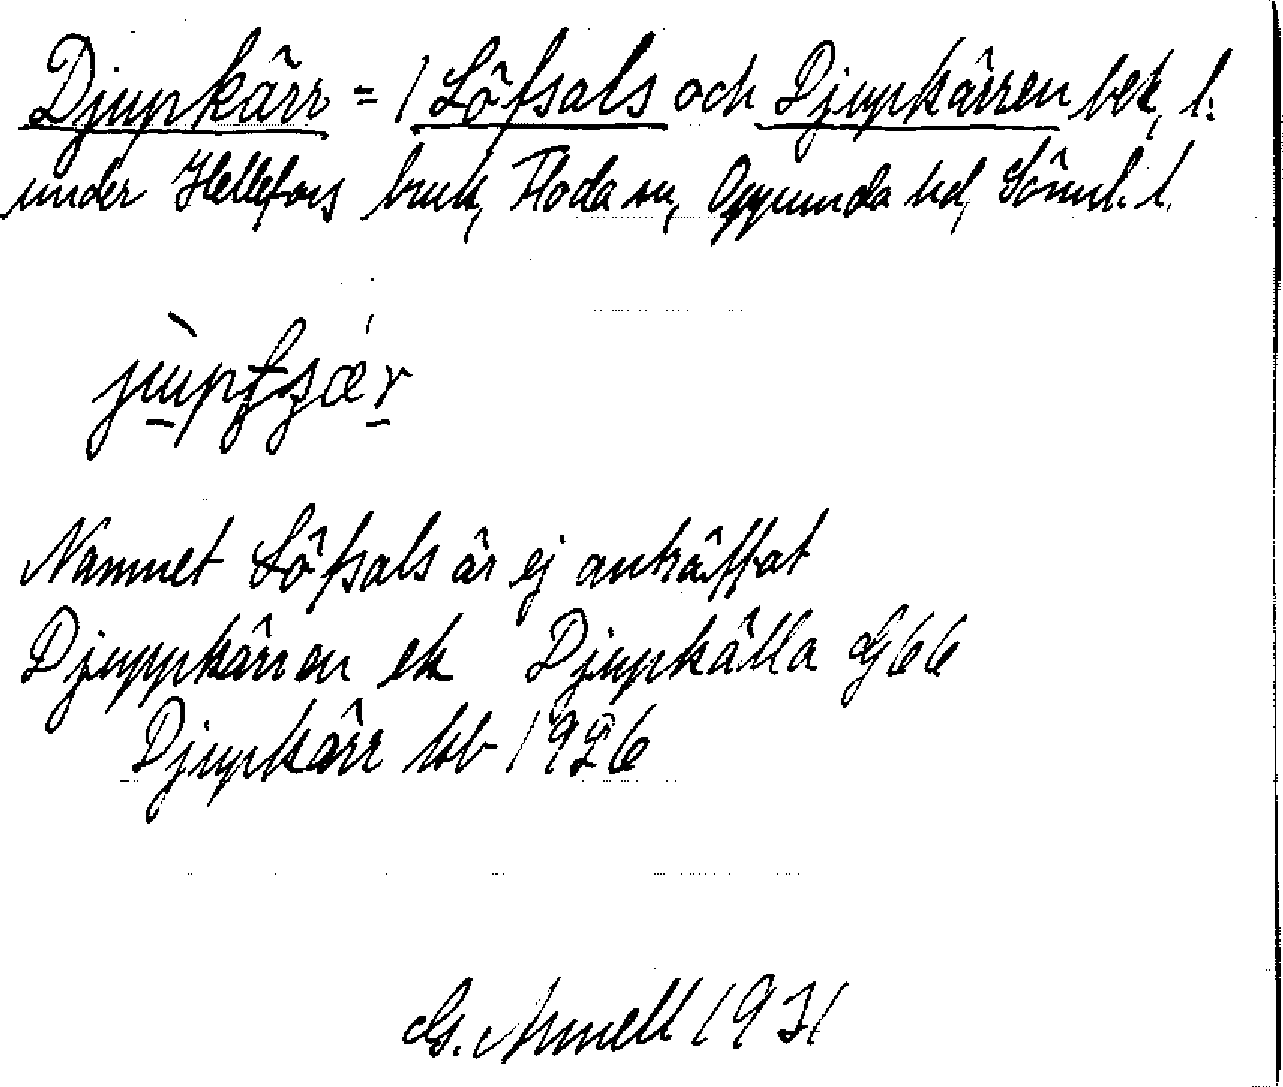 Djupkärr = 1 Löfsals och Djupkärren bek, l.
under Hellefors bruk, Floda sn, Oppunda hd, Söml. l.
Namnet Löfsals är ej anträffat
Djuppkärren ek Djupkälla G66
Djupkärr kb 1926
G. Armell 1931